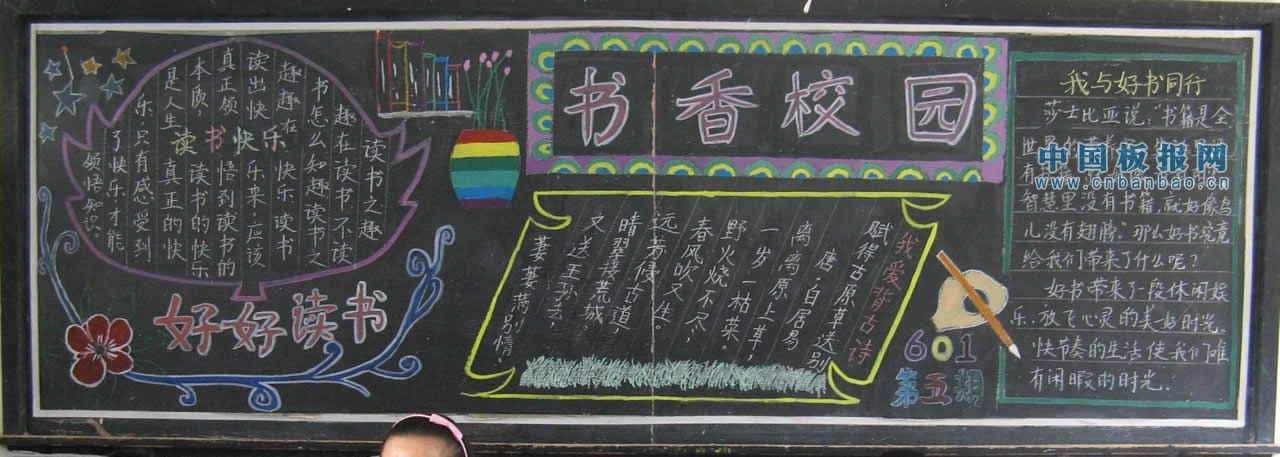 读书之趣
趣在读书,不读
书怎么知趣,读书之
趣趣在快乐读书
读出快乐来,应该
真正领悟到读书的
本质,读书的快乐
是人生真正的快
乐,只有感受到
了快乐才能
领悟知识。
读书快乐
好好读书
书香校园
我爱背古诗
赋得古原草送别
唐 白居易
离离原上草,
一岁一枯荣。
野火烧不尽,
春风吹又生。
远芳侵古道,
晴翠接荒城。
又送王孙去,
萋萋满别情。
601
第五期
我与好书同行
莎士比亚说,“书籍是全
世界的营养
有书籍
智慧里没有书籍,就好像鸟
儿没有翅膀。”那么好书究竟
给我们带来了什么呢?
好书带来了一段休闲娱
乐,放飞心灵的美好时光。
快节奏的生活使我们难
有闲暇的时光。
中国板报网
www.cnbanbao.cn